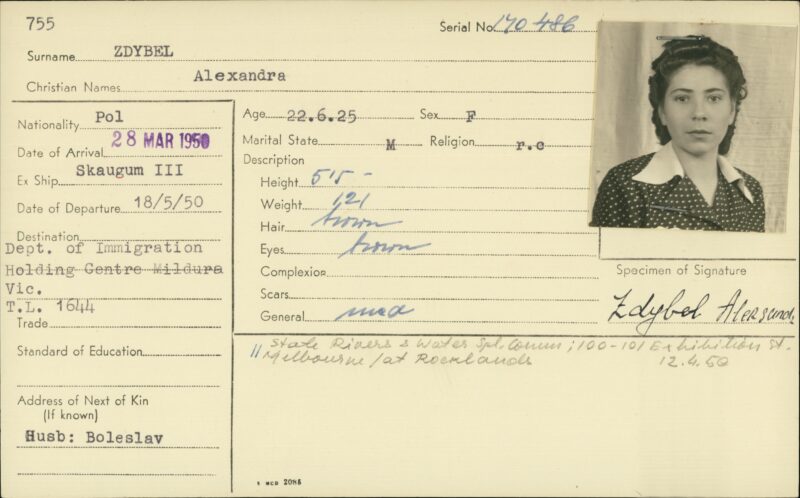 755
Serial No. 170 486
Surname ZDYBEL
Christian Names Alexandra
Nationality Pol
Date of Arrival 28 MAR 1950
Ex Ship Skaugum III
Date of Departure 18/5/50
Destination
Dept. of Immigration
Holding Centre Mildura
Vic.
T.L. 1644
Trade
Standard of Education
Address of Next of Kin
(If known)
Husb: Boleslav
Age 22.6.25 Sex F
Marital State M Religion r.c
Description
Height 5'5 -
Weight 121
Hair brown
Eyes brown
Complexion
Scars
General med
Specimen of Signature
Zdybel Aleksandr
11 State Rivers & Water Spl. Comm; 100-101 Exhibition St.
Melbourne / at Rocklands 12.4.50
2086